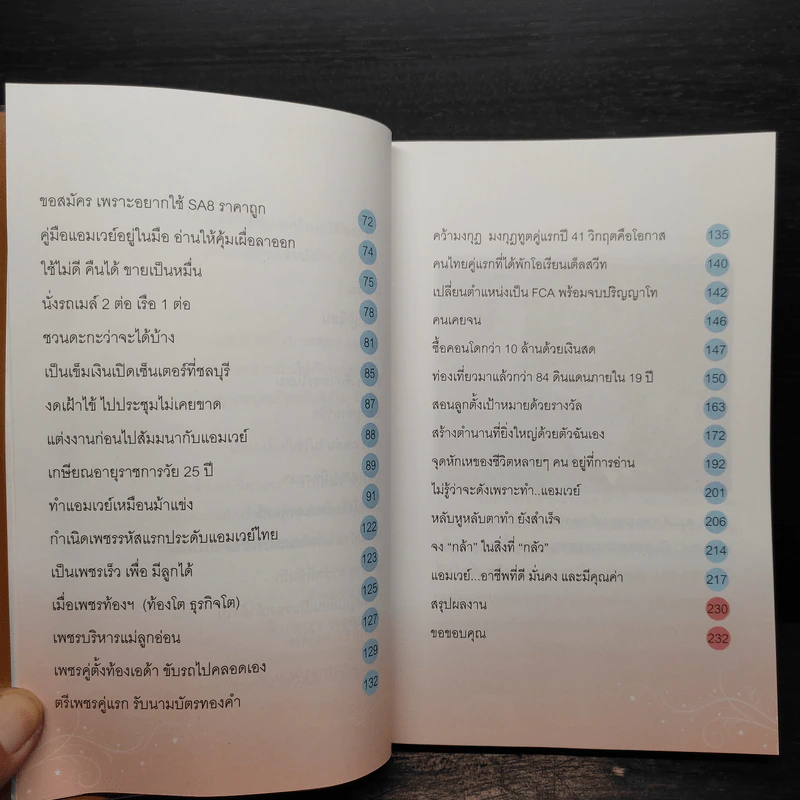 ขอสมัคร เพราะอยากใช้ SA8 ราคาถูก 72
คู่มือแอมเวย์อยู่ในมือ อ่านให้คุ้มเผื่อลาออก 74
ใช้ไม่ดี คืนได้ ขายเป็นหมื่น 75
นั่งรถเมล์ 2 ต่อ เรือ 1 ต่อ 78
ชวนดะกะว่าจะได้บ้าง 81
เป็นเข็มเงินเปิดเซ็นเตอร์ที่ชลบุรี 85
งดเฝ้าไข้ ไปประชุมไม่เคยขาด 87
แต่งงานก่อนไปสัมมนากับแอมเวย์ 88
เกษียณอายุราชการวัย 25 ปี 89
ทำแอมเวย์เหมือนม้าแข่ง 91
กำเนิดเพชรรหัสแรกประดับแอมเวย์ไทย 122
เป็นเพชรเร็ว เพื่อ มีลูกได้ 123
เมื่อเพชรท้องฯ (ท้องโต ธุรกิจโต) 125
เพชรบริหารแม่ลูกอ่อน 127
เพชรคู่ตั้งท้องเอด้า ขับรถไปคลอดเอง 129
ตรีเพชรคู่แรก รับนามบัตรทองคำ 132
คว้ามงกุฎ มงกุฎทูตคู่แรกปี 41 วิกฤตคือโอกาส 135
คนไทยคู่แรกที่ได้พักโอเรียนเต็ลสวีท 140
เปลี่ยนตำแหน่งเป็น FCA พร้อมจบปริญญาโท 142
คนเคยจน 146
ซื้อคอนโดกว่า 10 ล้านด้วยเงินสด 147
ท่องเที่ยวมาแล้วกว่า 84 ดินแดนภายใน 19 ปี 150
สอนลูกตั้งเป้าหมายด้วยรางวัล 163
สร้างตำนานที่ยิ่งใหญ่ด้วยตัวฉันเอง 172
จุดหักเหของชีวิตหลายๆ คน อยู่ที่การอ่าน 192
ไม่รู้ว่าจะดังเพราะทำ..แอมเวย์ 201
หลับหูหลับตาทำ ยังสำเร็จ 206
จง “กล้า” ในสิ่งที่ “กลัว” 214
แอมเวย์...อาชีพที่ดี มั่นคง และมีคุณค่า 217
สรุปผลงาน 230
ขอขอบคุณ 232